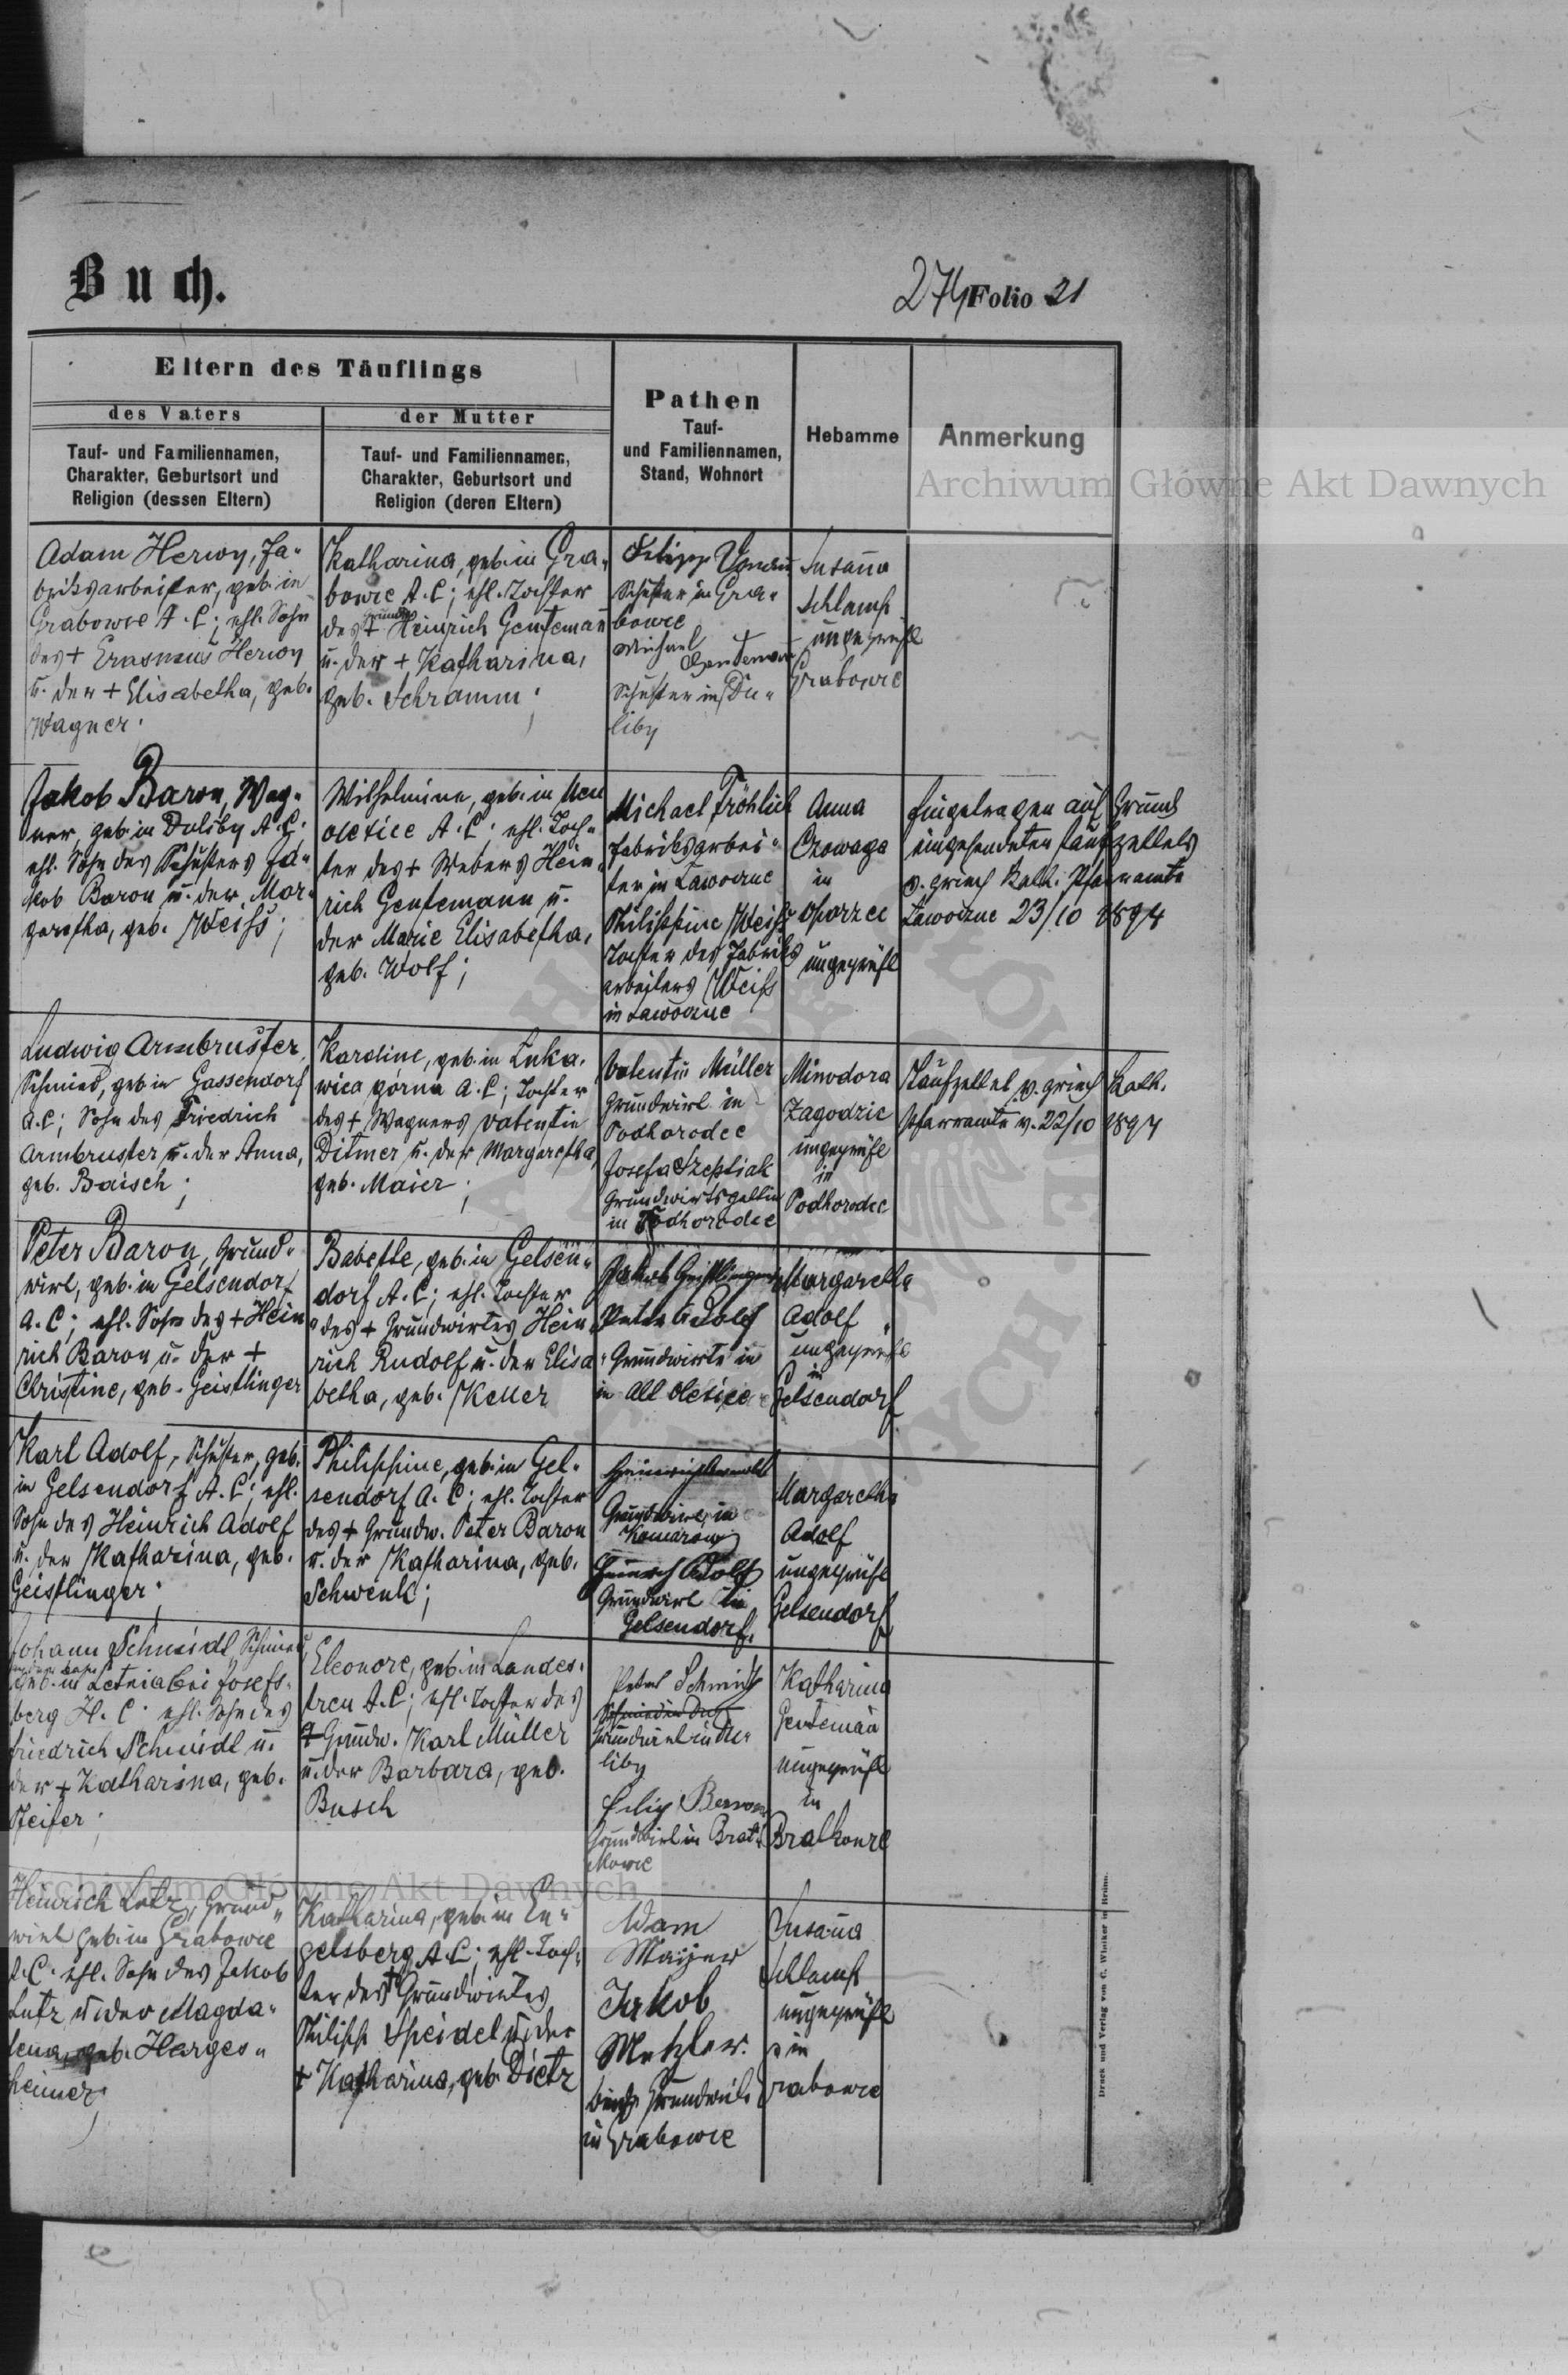 Buch.
274 Folio 21
Eltern des Täuflings
des Vaters
der Mutter
Tauf- und Familiennamen,
Charakter, Geburtsort und
Religion (dessen Eltern)
Tauf- und Familiennamen,
Charakter, Geburtsort und
Religion (deren Eltern)
Pathen
Tauf-
und Familiennamen,
Stand, Wohnort
Hebamme
Anmerkung
Archiwum Główne Akt Dawnych
Adam Herwy, Fa-
briksarbeiter, geb. in
Grabowce A. C.; ehl. Sohn
des + Erasmus Herwy
u. der + Elisabetha, geb.
Wagner.
Katharina, geb. in Gra-
bowce A. C.; ehl. Tochter
des + Heinrich Gentemann
u. der + Katharina,
geb. Schramm;
Filipp
Schuster in Gra-
bowce
Michael
Gentemann
Schuster in Du-
liby
Susanna
Schlamp
ungeprüft
Grabowce
Jakob Baron, Wag-
ner, geb. in Duliby A. C.
ehl. Sohn des Schusters Ja-
kob Baron u. der Mar-
garetha, geb. Weiß;
Wilhelmine, geb. in Neu
Olexice A. C.; ehl. Toch-
ter des + Webers Hein-
rich Gentemann u.
der Marie Elisabetha,
geb. Wolf;
Michael Fröhlich
Fabriksarbei-
ter in Lawoczne
Philippine Weiß
Tochter des Fabriks
arbeiters Weiß
in Lawoczne
Anna
Czowaga
in
Oporzec
ungeprüft
Eingetragen auf Grund
eingesendeten Taufzettels
v. griech. kath. Pfarramte
Lawoczne 23/10 1894
Ludwig Armbruster,
Schmied, geb. in Gassendorf
A. C.; Sohn des Friedrich
Armbruster u. der Anna,
geb. Baisch;
Karoline, geb. in Luka-
wica górna A. C.; Tochter
des + Wagners Valentin
Ditmer u. der Margaretha,
geb. Maier;
Valentin Müller
Grundwirt in
Podhorodce
Josefa Szeptiak
Grundwirtsgattin
in Podhorodce
Minodora
Zagodzic
ungeprüft
in
Podhorodce
Taufzettel v. griech. kath.
Pfarramte v. 22/10 1894
Peter Baron, Grund-
wirt, geb. in Gelsendorf
A. C.; ehl. Sohn des + Hein
rich Baron u. der +
Christine, geb. Geistlinger
Babette, geb. in Gelsen-
dorf A. C.; ehl. Tochter
des + Grundwirtes Hein-
rich Rudolf u. der Elisa-
betha, geb. Keller
Jakob Geistlinger
Peter Adolf
Grundwirte in
in Alt Olexice
Margaretha
Adolf
ungeprüft
in
Gelsendorf
Karl Adolf, Schuster, geb.
in Gelsendorf A. C.; ehl.
Sohn des Heinrich Adolf
u. der Katharina, geb.
Geistlinger;
Philippine, geb. in Gel-
sendorf A. C.; ehl. Tochter
des + Grundw. Peter Baron
u. der Katharina, geb.
Schwenk;
Heinrich
Grundwirt in
Komarow
Heinrich Adolf
Grundwirt in
Gelsendorf.
Margaretha
Adolf
ungeprüft
Gelsendorf
Johann Schmidt, Schmied
geb. in Letnia bei Josefs-
berg H. C. ehl. Sohn des
Friedrich Schmidt u.
der + Katharina, geb.
Pfeifer;
Eleonore, geb. in Landes-
treu A. C.; ehl. Tochter des
+ Grundw. Karl Müller
u. der Barbara, geb.
Busch
Peter Schmidt
Grundwirt in Du-
liby
Filip
Grundwirt in Brat-
kowce
Katharina
Gentemann
ungeprüft
in
Bratkowce
Archiwum Główne Akt Dawnych
Heinrich Lutz, Grund-
wirt geb. in Grabowce
A. C. ehl. Sohn des Jakob
Lutz u. der Magda-
lena, geb. Herges-
heimer;
Katharina, geb. in En-
gelsberg A. C.; ehl. Toch-
ter des + Grundwirtes
Philipp Speidel u. der
+ Katharina, geb. Dietz
Adam
Maijer
Jakob
Metzler.
beide Grundwirte
in Grabowce
Susanna
Schlamp
ungeprüft
in
Grabowce
Druck und Verlag von C. Winiker in Brünn.